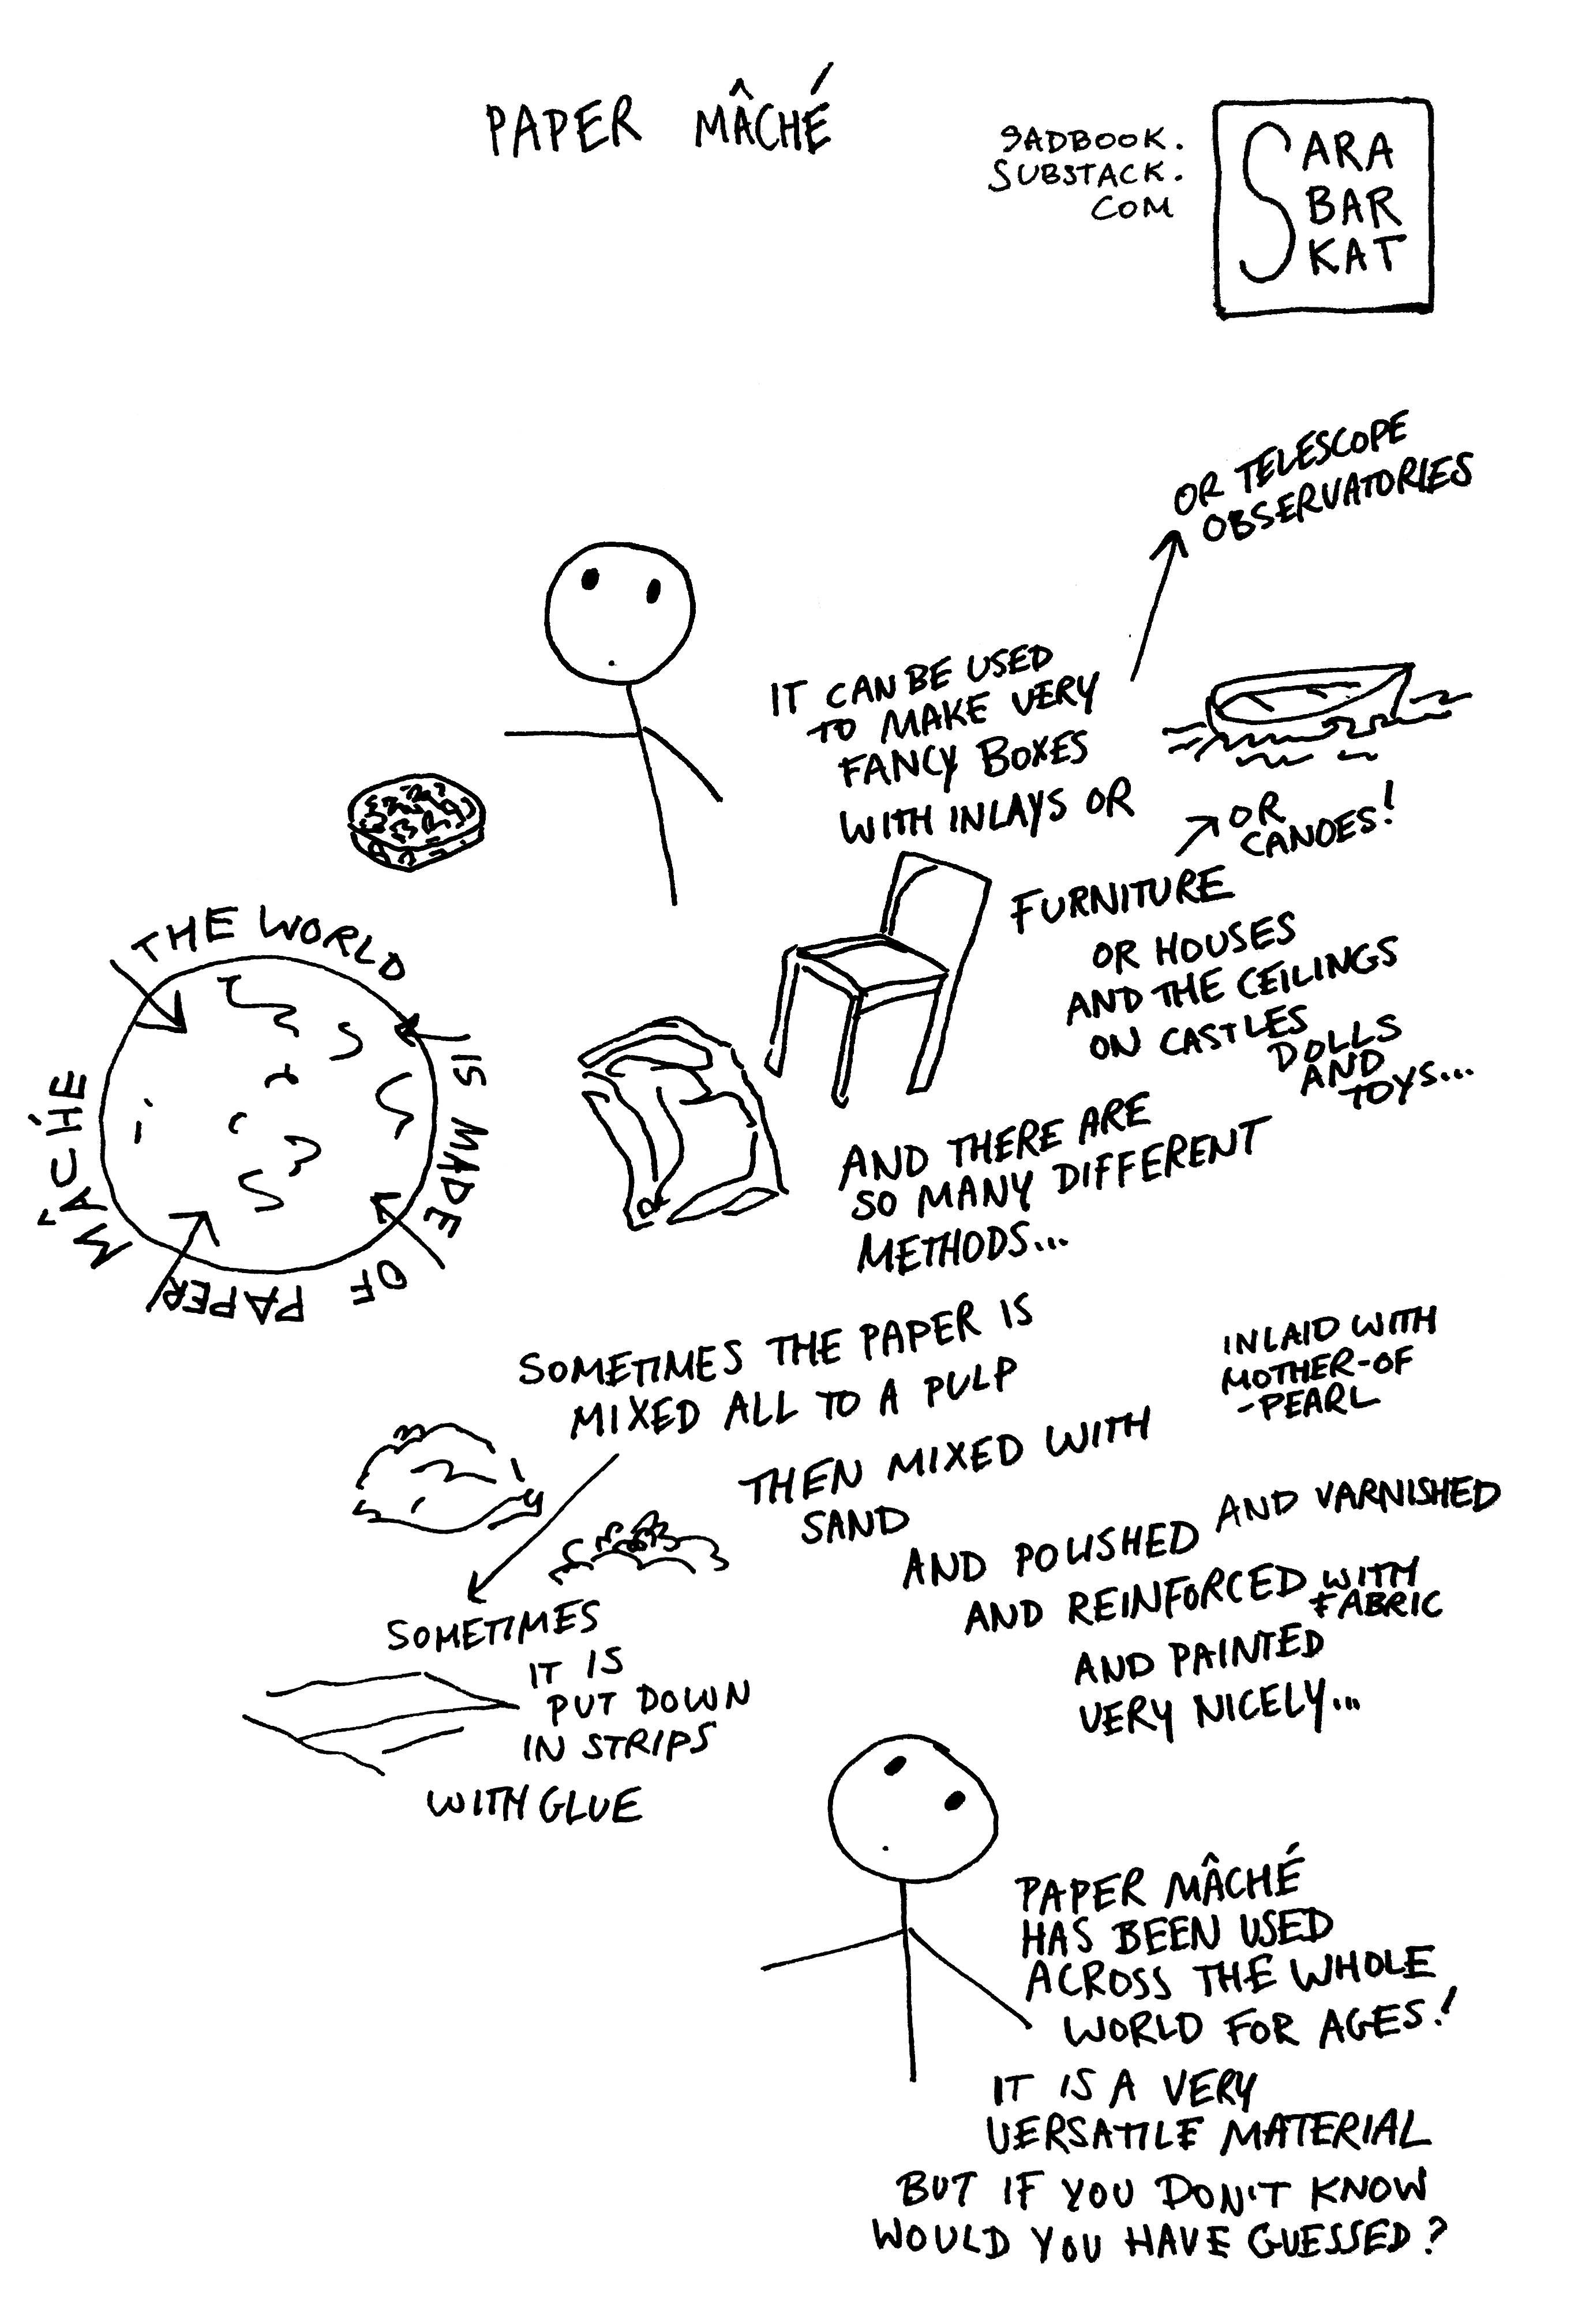 PAPER MÂCHÉ
SADBOOK.
SUBSTACK.
COM
SARA
BAR
KAT
OR TELESCOPE
OBSERVATORIES
IT CAN BE USED
TO MAKE VERY
FANCY BOXES
WITH INLAYS OR
OR
CANOES!
FURNITURE
OR HOUSES
AND THE CEILINGS
ON CASTLES
DOLLS
AND
TOYS...
THE WORLD
IS MADE
OF
PAPER
MÂCHÉ
AND THERE ARE
SO MANY DIFFERENT
METHODS...
SOMETIMES THE PAPER IS
MIXED ALL TO A PULP
INLAID WITH
MOTHER-OF
-PEARL
THEN MIXED WITH
SAND
AND POLISHED AND VARNISHED
AND REINFORCED WITH
FABRIC
AND PAINTED
VERY NICELY...
SOMETIMES
IT IS
PUT DOWN
IN STRIPS
WITH GLUE
PAPER MÂCHÉ
HAS BEEN USED
ACROSS THE WHOLE
WORLD FOR AGES!
IT IS A VERY
VERSATILE MATERIAL
BUT IF YOU DON'T KNOW
WOULD YOU HAVE GUESSED?